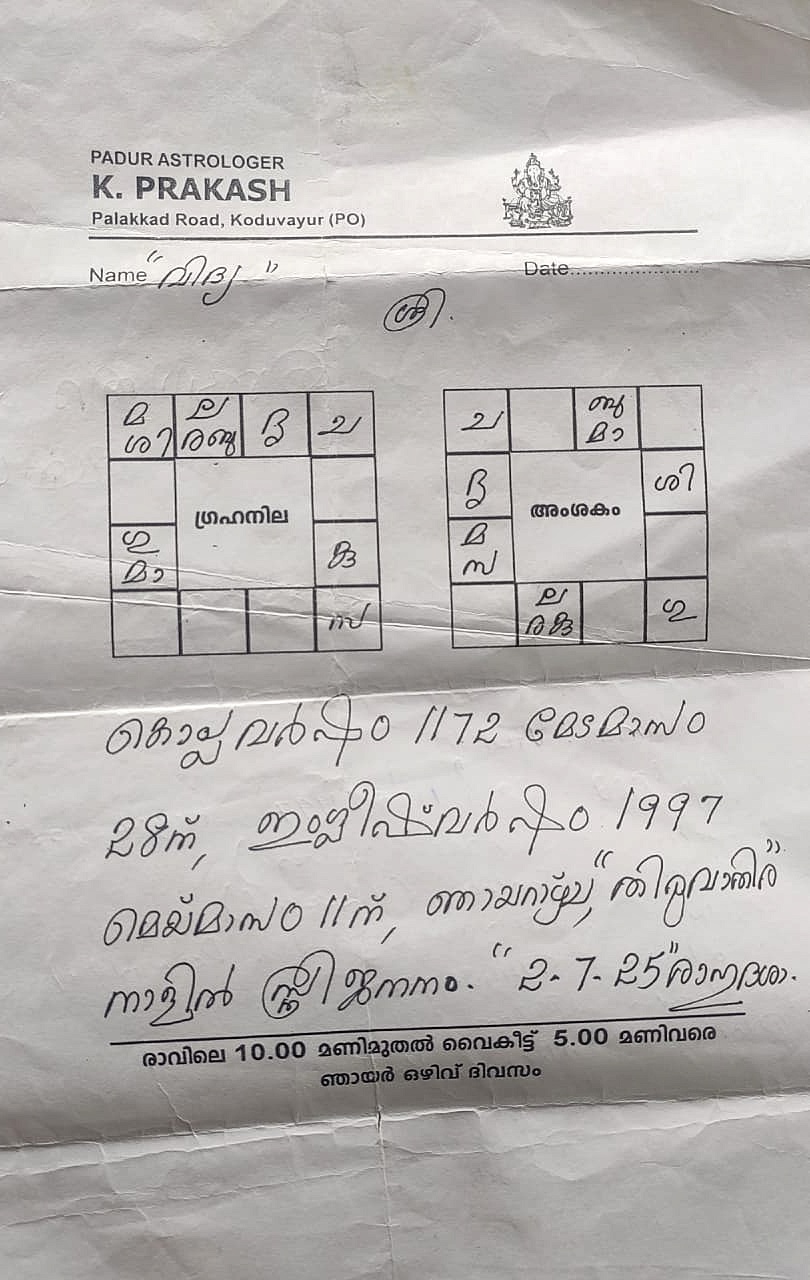 PADUR ASTROLOGER
K. PRAKASH
Palakkad Road, Koduvayur (PO)
Name "വിദ്യ" Date......................
ശ്രീ.
മ ല ച
ശി രബു
ഗ്രഹനില
ഗു
മാ
സ
ച ബു
മാ
ശി
അംശകം
മ
സ
ല
ഗു
കൊല്ലവർഷം 1172 മേടമാസം
28ന്, ഇംഗ്ലീഷ്‌വർഷം 1997
മെയ്മാസം 11ന്, ഞായറാഴ്ച, "തിരുവാതിര"
നാളിൽ സ്ത്രീജനനം. "2-7-25" രാഹുദശാ.
രാവിലെ 10.00 മണിമുതൽ വൈകീട്ട് 5.00 മണിവരെ
ഞായർ ഒഴിവ് ദിവസം